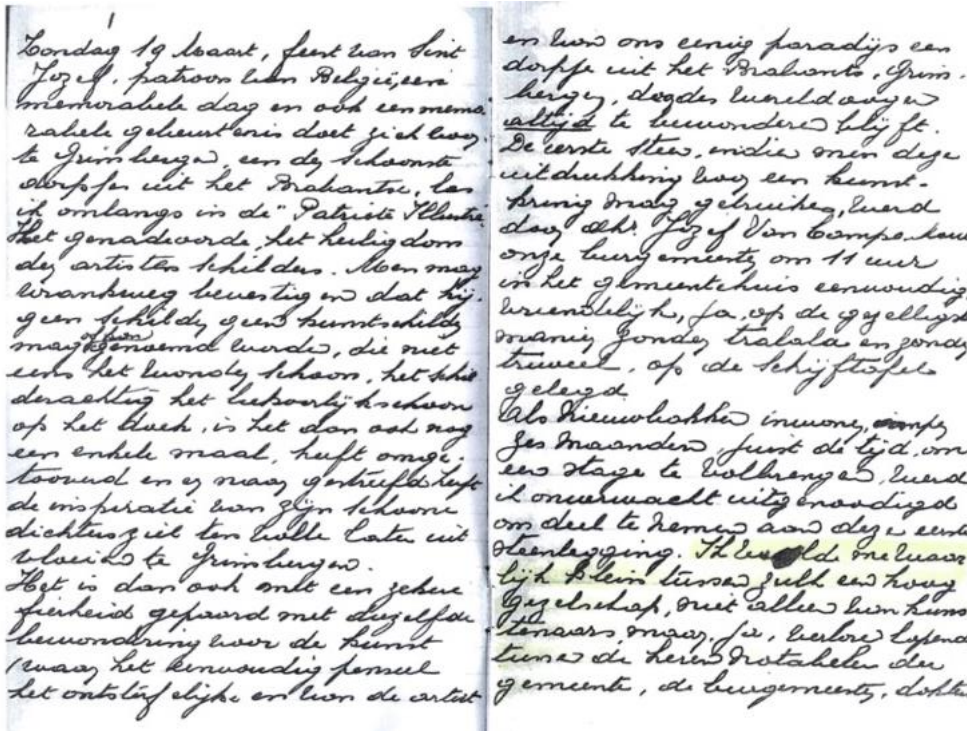 1
Zondag 19 Maart, feest van Sint
Jozef, patroon van België, een
memorabele dag en ook een memo
rabele gebeurtenis doet zich voor
te Grimbergen, een der schoonste
dorpjes uit het Brabantse, las
ik onlangs in de "Patriote Illustré"
Het genadeoorde, het heiligdom
der artisten schilders. Men mag
vrankweg bevestigen dat hij
geen schilder geen kunstschilder
mag of kan genoemd worde, die niet
eens het wonder schoon, het schil
derachtig het bekoorlijk schoon
op het doek, is het dan ook nog
een enkele maal, heeft omge-
tooverd en er naar gestreefd heeft
de inspiratie van zijn schoone
dichtersziel ten volle laten uit
vloeien te Grimbergen.
Het is dan ook met een zekere
fierheid gepaard met diezelfde
bewondering voor de kunst
waar het eenvoudig penseel
het onsterfelijke en van de artist
en van ons eenig paradijs een
dorpje uit het Brabants, Grim-
bergen, door der wereld oogen
altijd te bewonderen blijft.
De eerste steen, indien men deze
uitdrukking voor een kunst-
kring mag gebruiken, werd
door dhr. Jozef Van Campenhout
onze burgemeester, om 11 uur
in het gemeentehuis eenvoudig,
vriendelijk, ja, op de gezelligste
manier zonder tralala en zonder
truweel, op de schijftafel
gelegd
Als nieuwbakken inwoner, amper
zes maanden, juist de tijd, om
een stage te volbrengen, werd
ik onverwacht uitgenoodigd
om deel te nemen aan deze eerste
steenlegging. Ik voelde me waar
lijk klein tussen zulk een hoog
gezelschap, niet alleen van kuns
tenaars maar, ja, verloren lopend
tussen de heren notabelen der
gemeente, de burgemeester, dokter